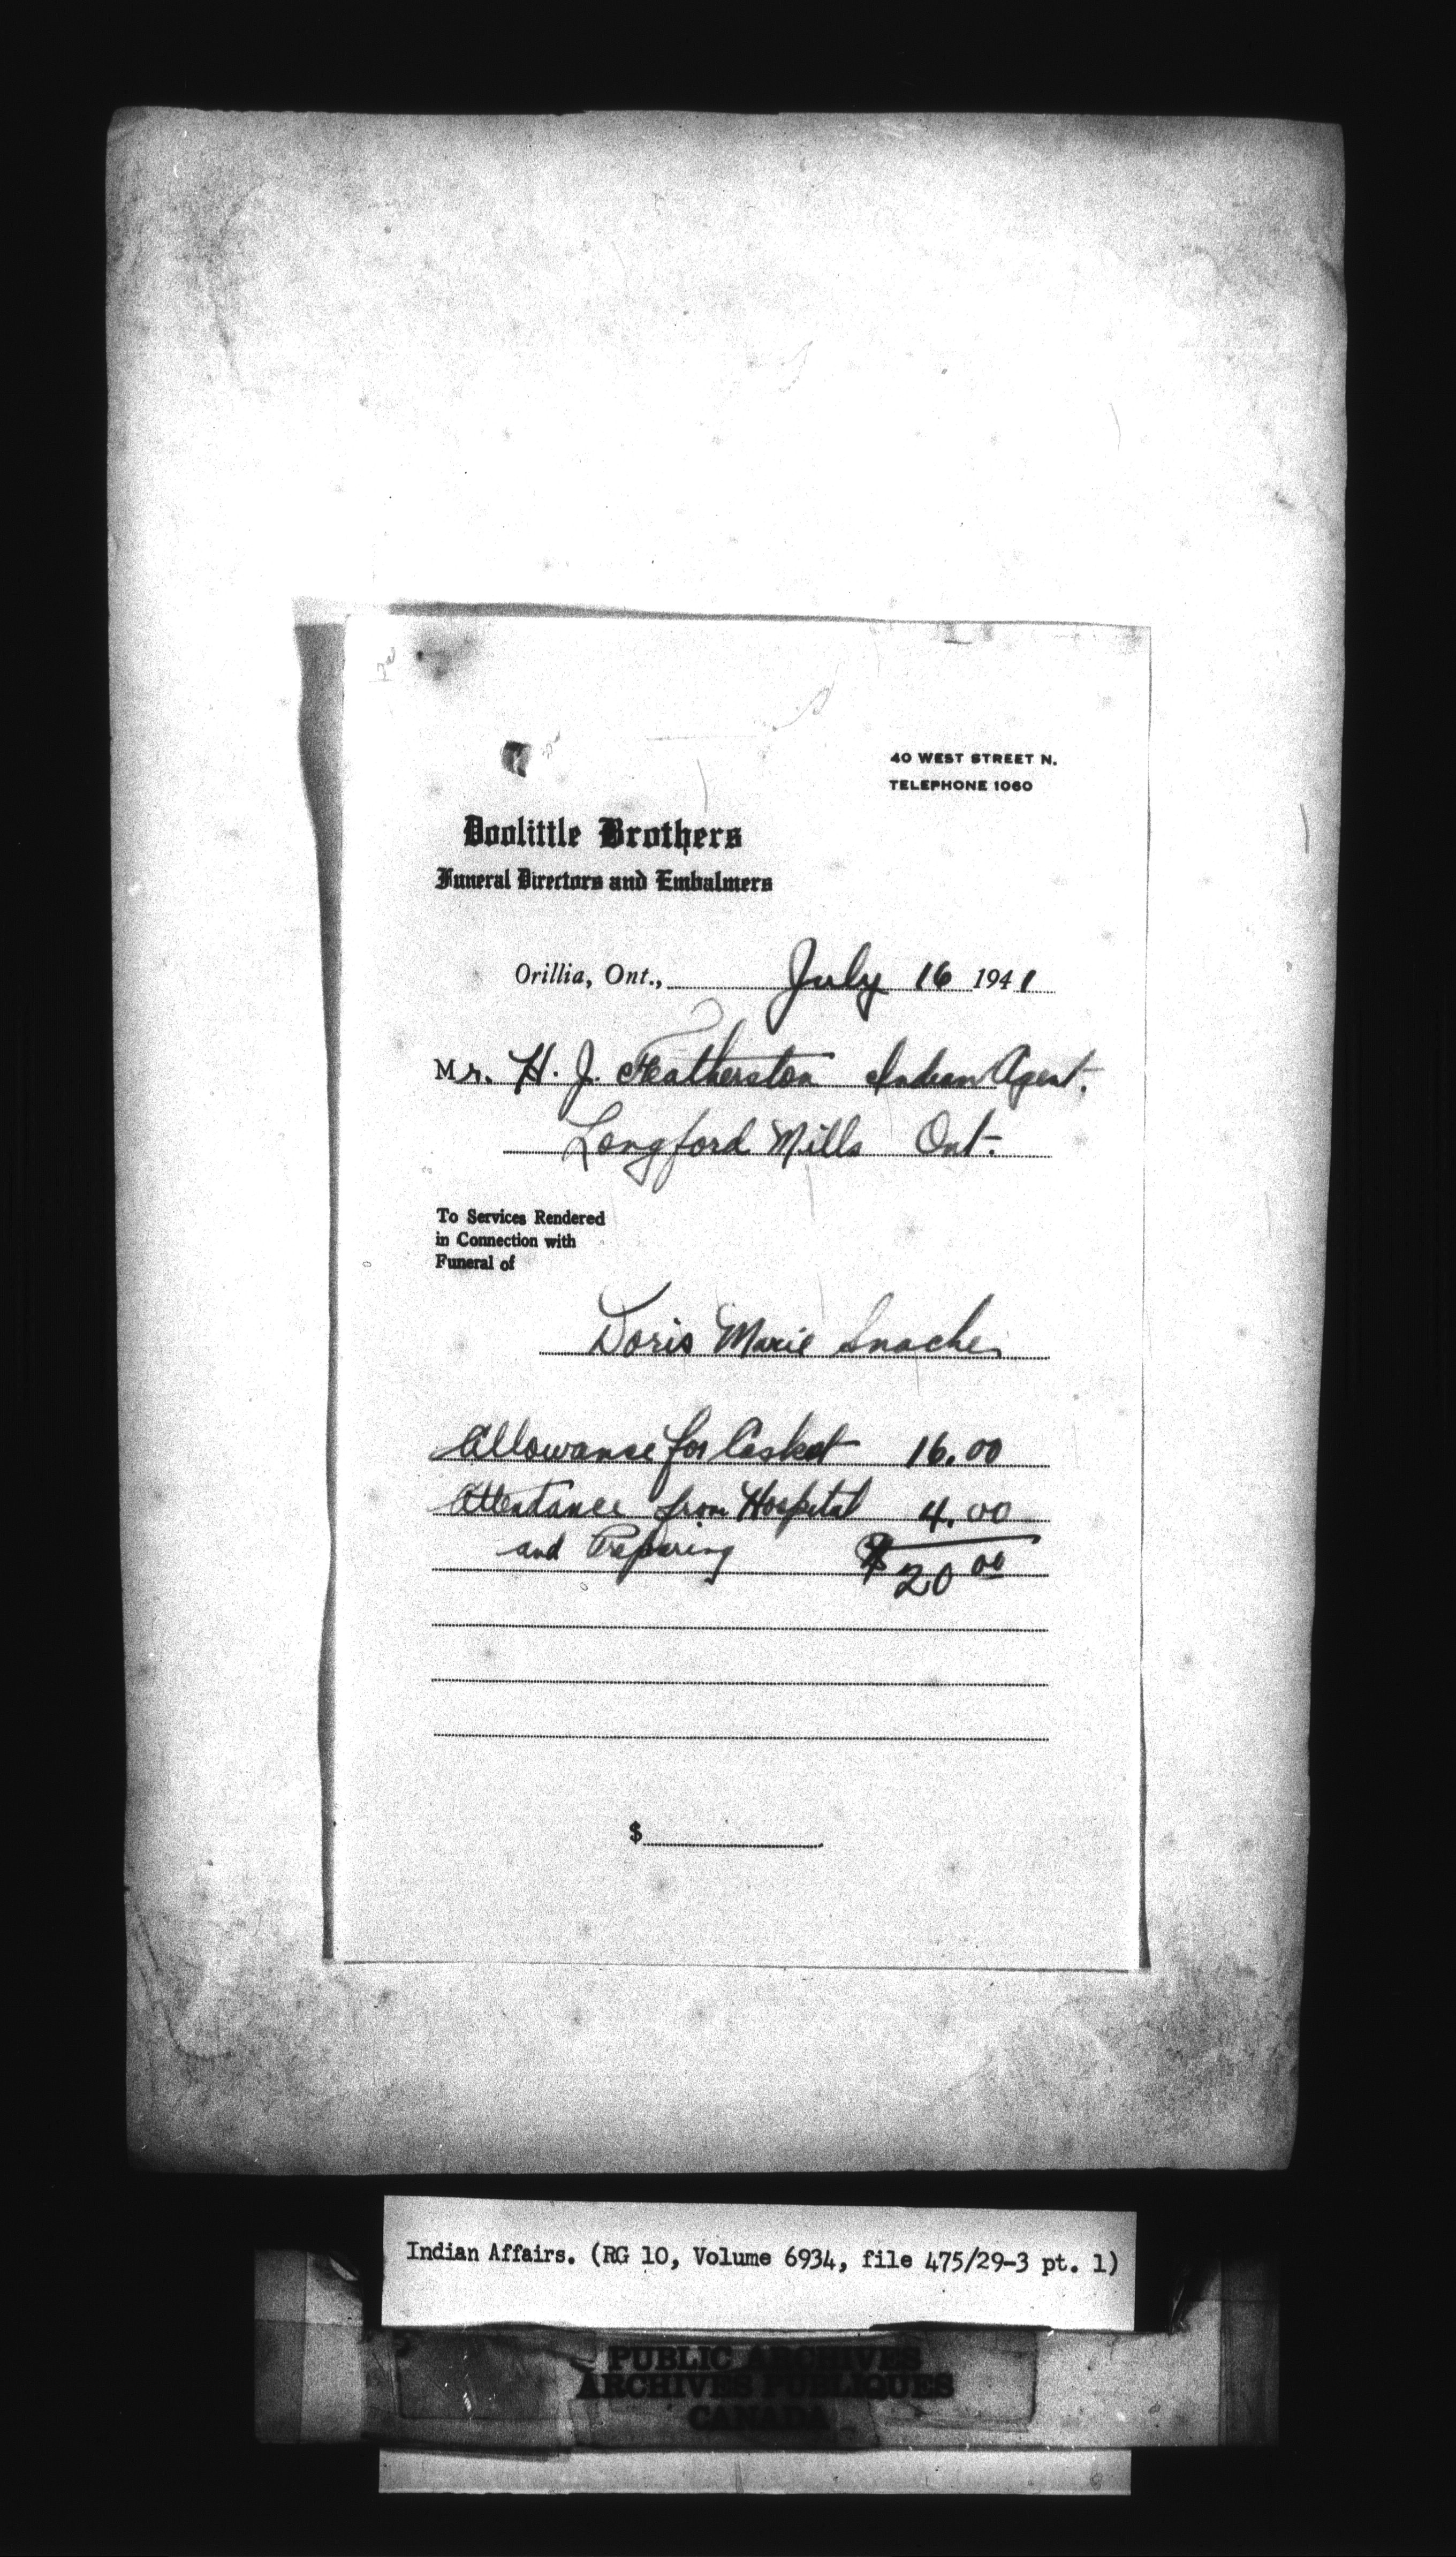 40 WEST STREET N.
TELEPHONE 1060
Doolittle Brothers
Funeral Directors and Embalmers
Orillia, Ont., July 16 1941
Mr. H. J. Featherston Indian Agent.
Longford Mills Ont.
To Services Rendered
in Connection with
Funeral of
Doris Marie Snache
Allowance for Casket 16.00
Attendance from Hospital 4.00
and Preparing $20 00
$
Indian Affairs. (RG 10, Volume 6934, file 475/29-3 pt. 1)
PUBLIC ARCHIVES
ARCHIVES PUBLIQUES
CANADA